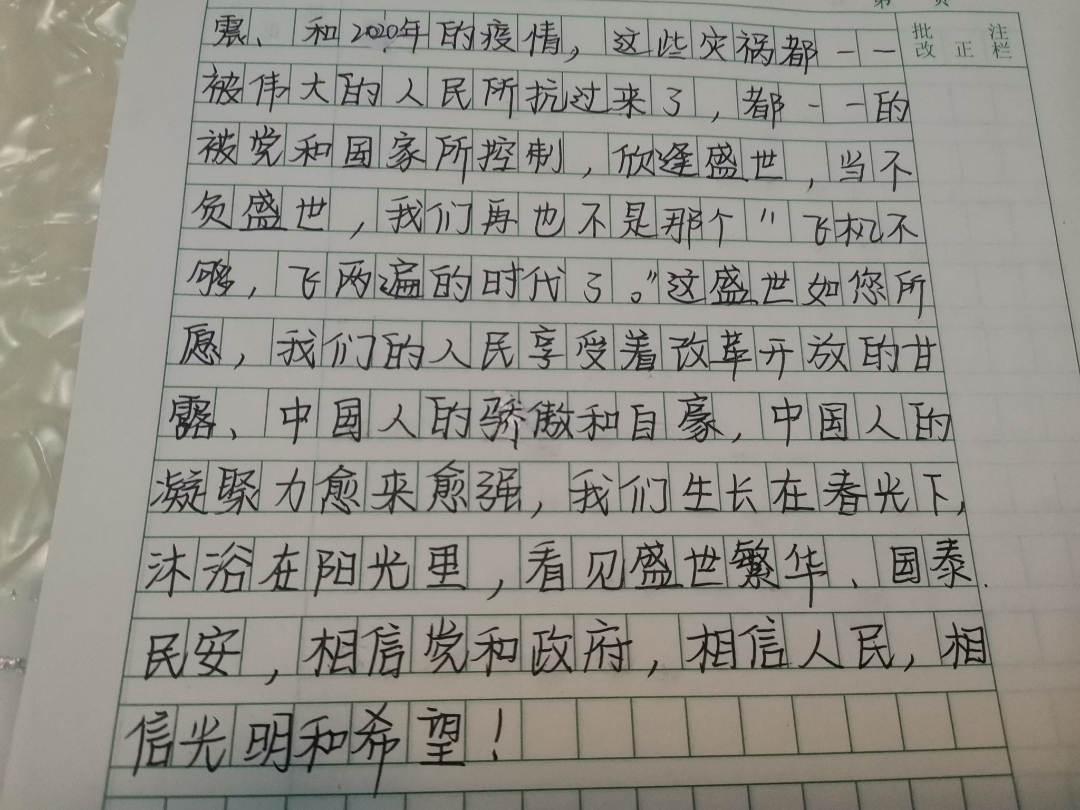 第 页
批改 正 注栏
震、和2020年的疫情，这些灾祸都一一
被伟大的人民所抗过来了，都一一的
被党和国家所控制，欣逢盛世，当不
负盛世，我们再也不是那个"飞机不
够，飞两遍的时代了。"这盛世如您所
愿，我们的人民享受着改革开放的甘
露、中国人的骄傲和自豪，中国人的
凝聚力愈来愈强，我们生长在春光下，
沐浴在阳光里，看见盛世繁华、国泰
民安，相信党和政府，相信人民，相
信光明和希望！